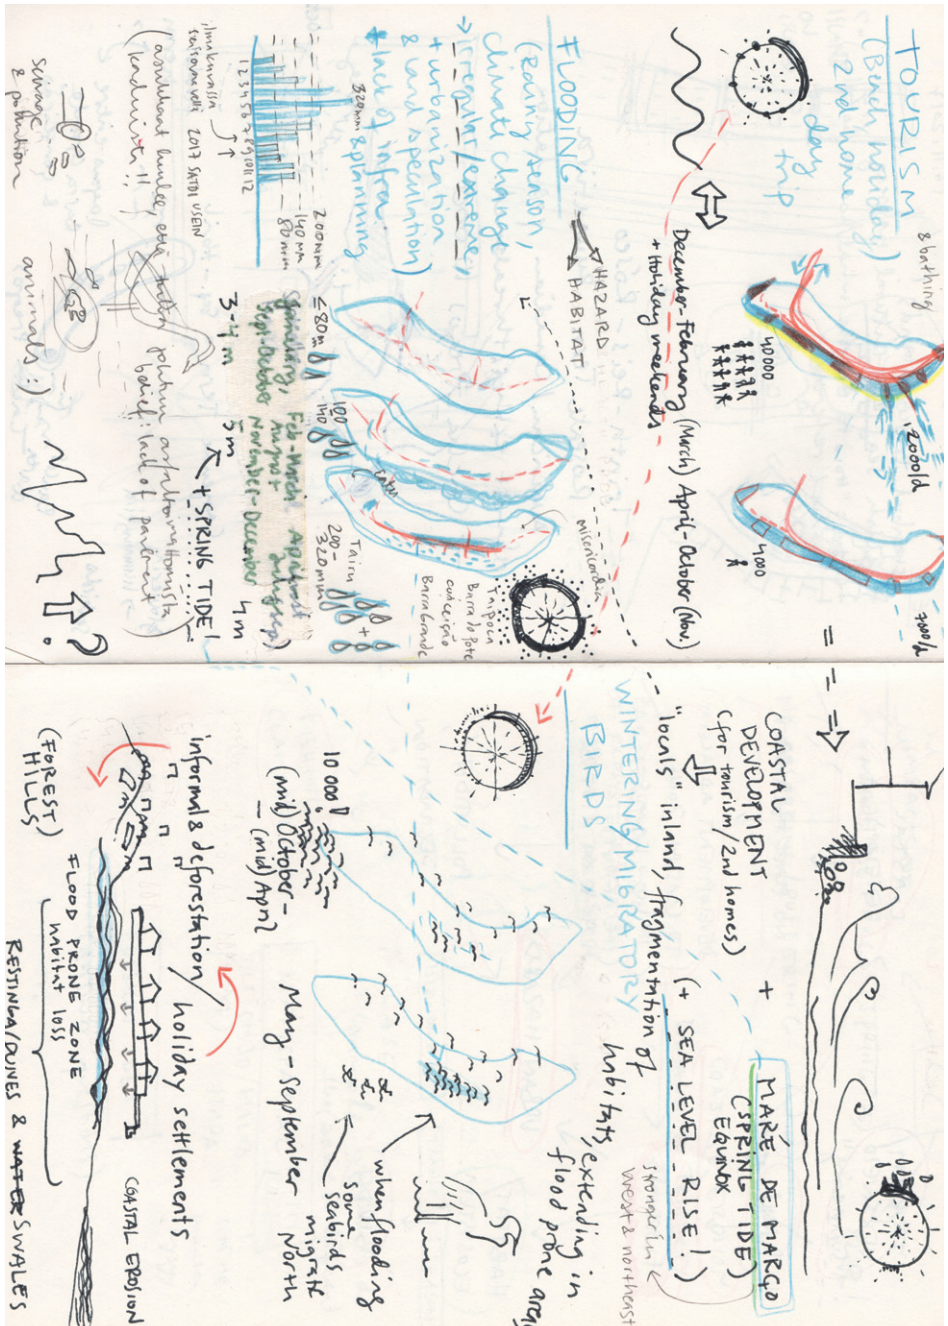 TOURISM
(Beach holiday,
2nd home
day
trip
& bathing
40000
12000/d
4000
December-February (March) April-October (Nov.)
+ Holiday weekends
FLOODING
(Rainy season,
climate change
→ irregular/extreme,
+ urbanization
& land speculation)
+ lack of infra.
HAZARD
HABITAT
320mm
200mm
140mm
80mm
1 2 3 4 5 6 7 8 9 10 11 12
2017
≤80mm
100
140
200-
320mm
misericordia
Taipoca
Barra do Pote
conceição
Barra Grande
Feb-March
August
Sept-October
November-December
3-4 m
5m
4m
+ SPRING TIDE!
belief: lack of pavement)
Sewage
& pollution
animals :)
?
COASTAL
DEVELOPMENT
(for tourism/2nd homes)
+
MARÉ DE MARÇO
(SPRING-TIDE)
EQUINOX
"locals" inland, fragmentation of
habitats, extending in
flood prone area
(+ SEA LEVEL RISE!)
stronger in
west & northeast
WINTERING/MIGRATORY
BIRDS
10 000
(mid) October-
-(mid) April
May-September
when flooding
some
seabirds
migrate
North
informal & deforestation / holiday settlements
(FOREST)
HILLS
FLOOD PRONE ZONE
habitat loss
COASTAL EROSION
RESTINGA/DUNES & WATER SWALES